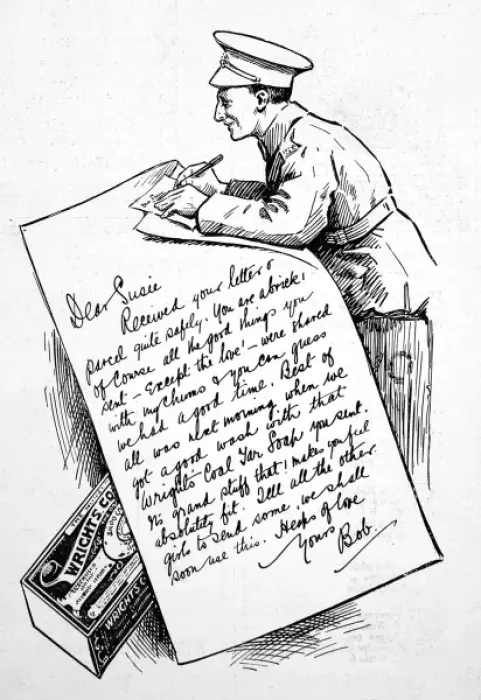 Dear Susie
Received your letter &
parcel quite safely. You are a brick!
of course all the good things you
sent – Except the love! – were shared
with my chums & you can guess
we had a good time. Best of
all was next morning when we
got a good wash with that
Wright's Coal Tar Soap you sent.
It's grand stuff that! makes you feel
absolutely fit. Tell all the other
girls to send some, we shall
soon use this. Heaps of love
Yours
Bob.
WRIGHT'S CO
WRIGHT'S C